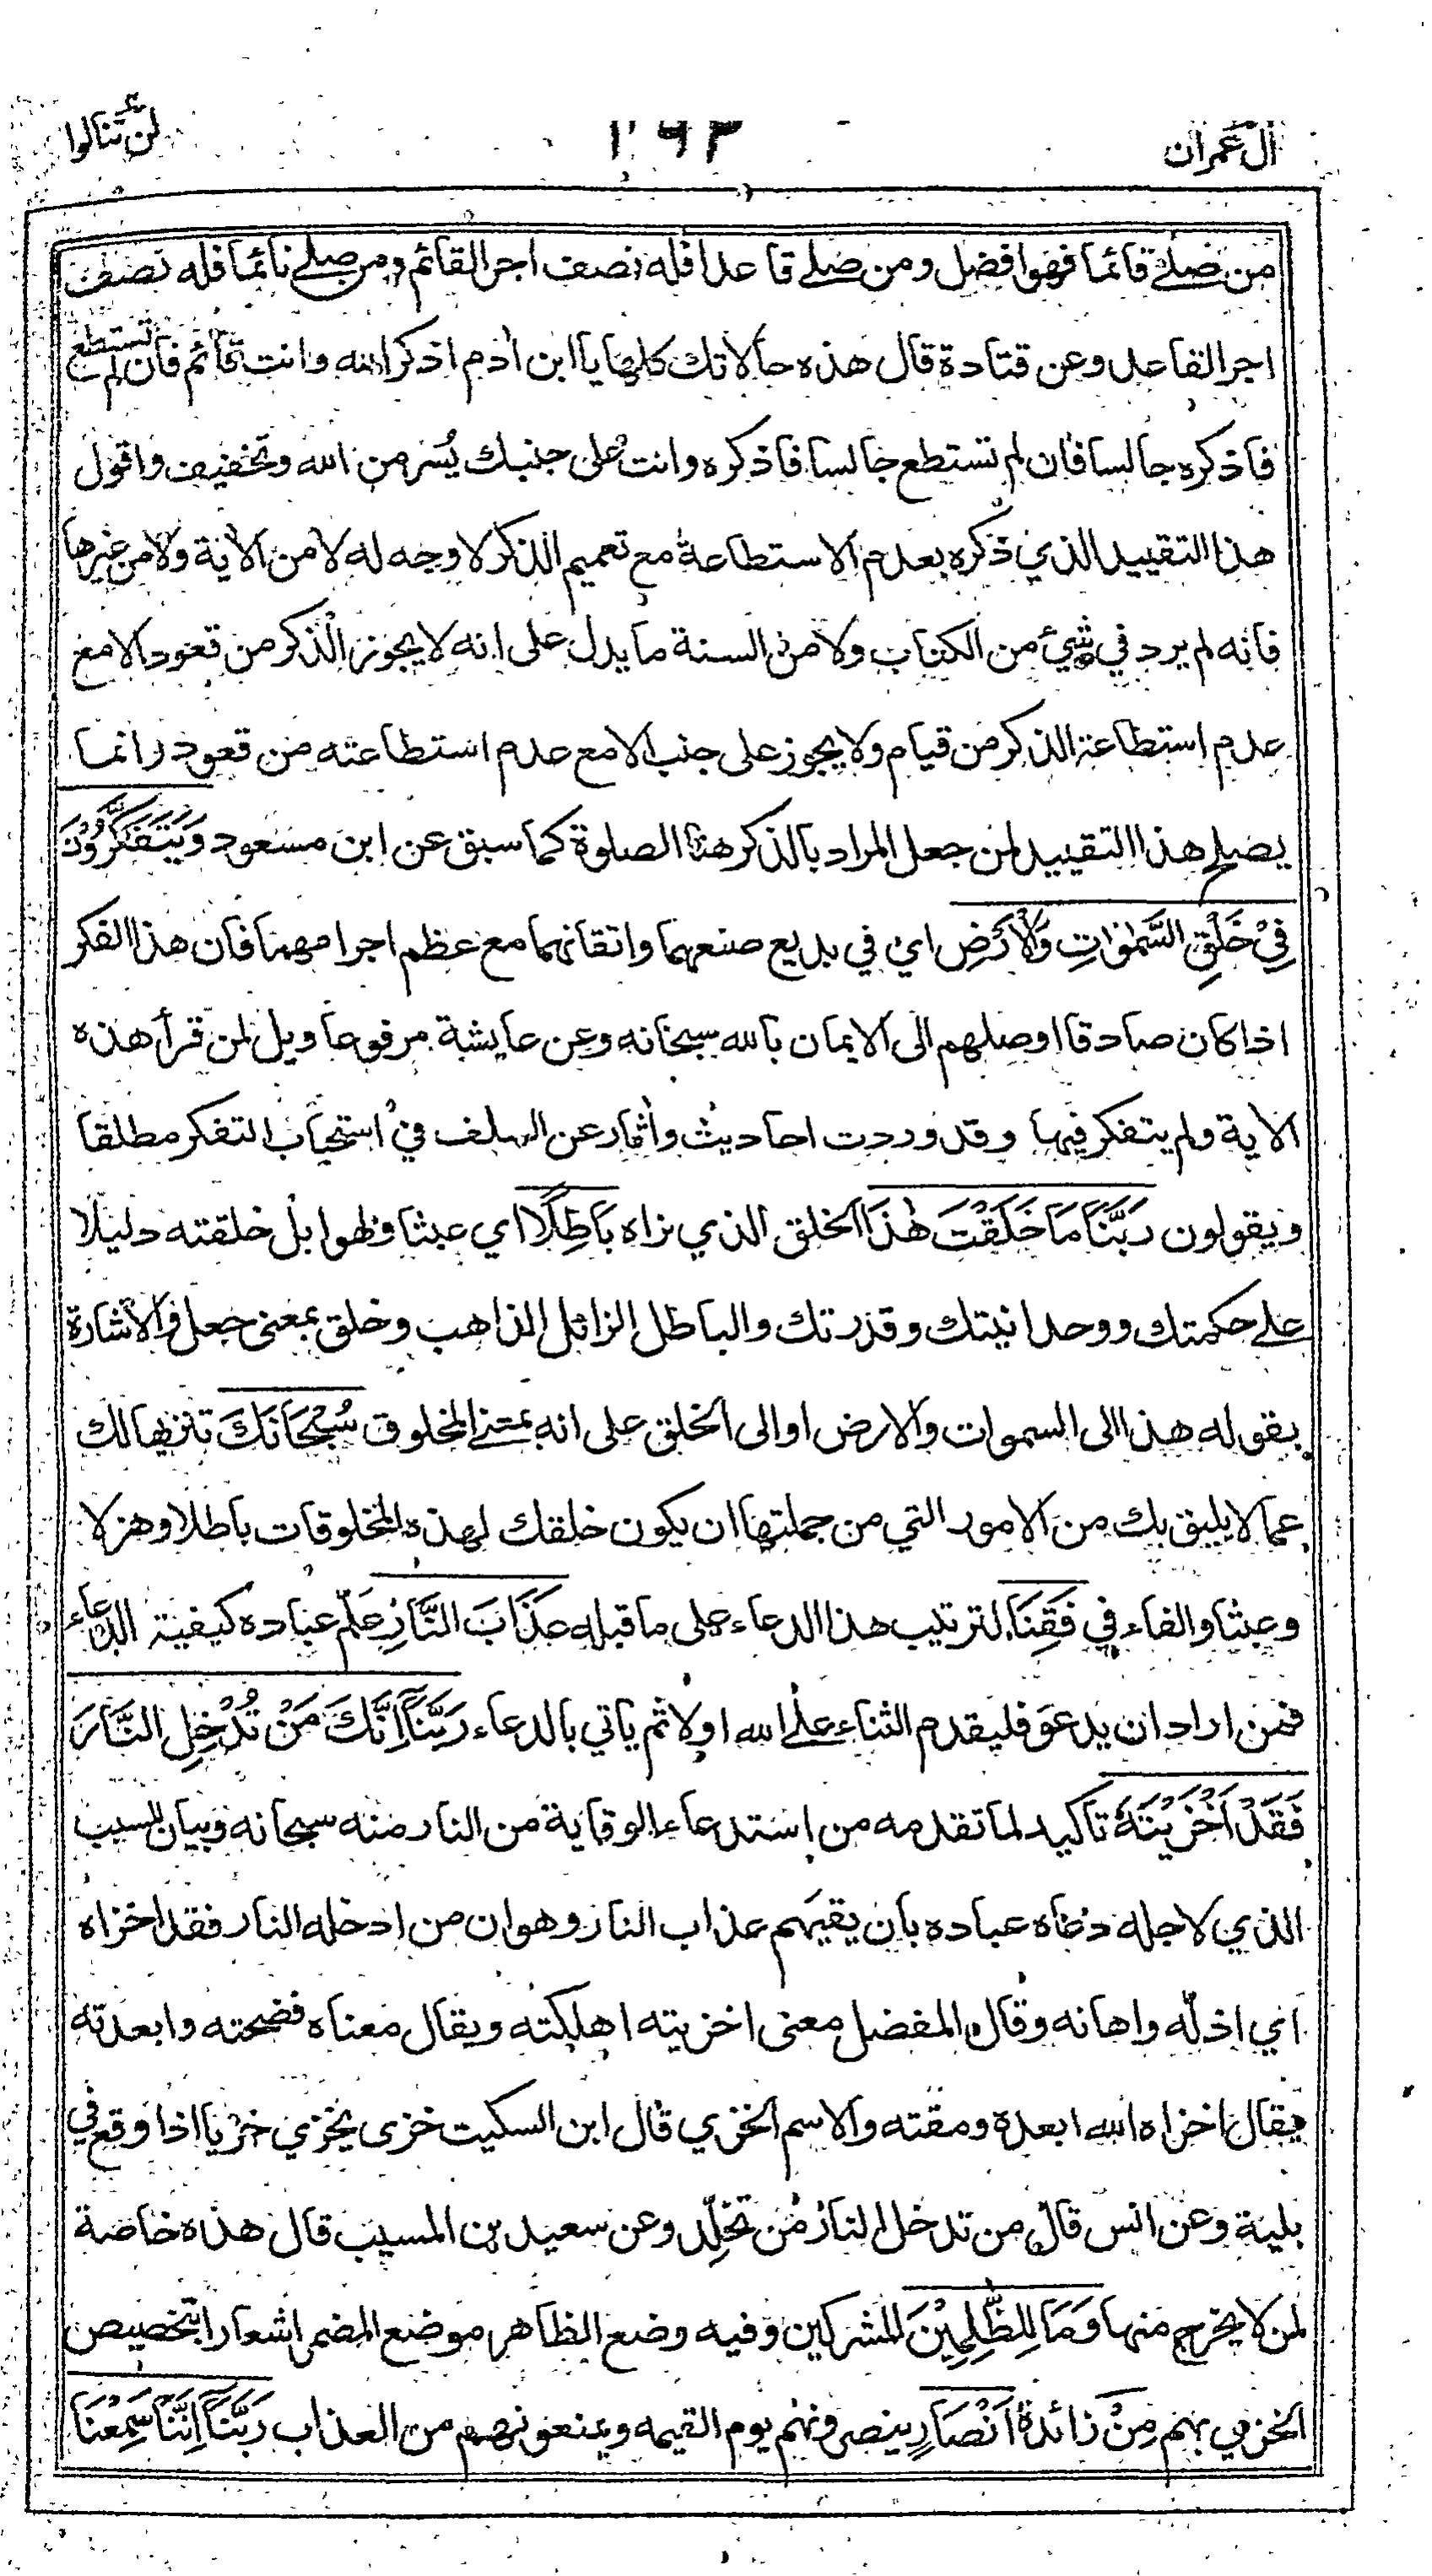 اٰل عمران
٦٩٣
لن تنالوا
من صلے قائما فهو افضل ومن صلے قاعدا فله نصف اجر القائم ومن صلے نائما فله نصف
اجر القاعد وعن قتادة قال هذه حالاتك كلها يا ابن اٰدم اذكر الله وانت قائم فان لم تستطع
فاذكره جالسا فان لم تستطع جالسا فاذكره وانت على جنبك يُسر من الله وتخفيف واقول
هذا التقييد الذي ذكره بعدم الاستطاعة مع تعميم الذكر لا وجه له لا من الاٰية ولا من غيرها
فانه لم يرد في شيئ من الكتاب ولا من السنة ما يدل على انه لا يجوز الذكر من قعود الا مع
عدم استطاعة الذكر من قيام ولا يجوز على جنب الا مع عدم استطاعته من قعود وانما
يصلح هذا التقييد لمن جعل المراد بالذكر هنا الصلوة كما سبق عن ابن مسعود وَيَتَفَكَّرُوْنَ
فِيْ خَلْقِ السَّمٰوَاتِ وَالْاَرْضِ اي في بديع صنعهما واتقانهما مع عظم اجرامهما فان هذا الفكر
اذا كان صادقا اوصلهم الى الايمان بالله سبحانه وعن عايشة مرفوعا ويل لمن قرأ هذه
الاية ولم يتفكر فيها وقد وردت احاديث واٰثار عن السلف في استحباب التفكر مطلقا
ويقولون رَبَّنَا مَا خَلَقْتَ هٰذَا الخلق الذي نراه بَاطِلًا اي عبثا ولهوا بل خلقته دليلا
علے حكمتك ووحدانيتك وقدرتك والباطل الزائل الذاهب وخلق بمعنى جعل والاشارة
بقوله هذا الى السموات والارض او الى الخلق على انه بمعنے المخلوق سُبْحَانَكَ تنزيها لك
عما لا يليق بك من الامور التي من جملتها ان يكون خلقك لهذه المخلوقات باطلا وهزلا
وعبثا والفاء في فَقِنَا لترتيب هذا الدعاء على ما قبله عَذَابَ النَّارِ علّم عباده كيفية الدعاء
فمن اراد ان يدعو فليقدم الثناء علے الله اولا ثم ياتي بالدعاء رَبَّنَآ اِنَّكَ مَنْ تُدْخِلِ النَّارَ
فَقَدْ اَخْزَيْتَهٗ تاكيد لما تقدمه من استدعاء الوقاية من النار منه سبحانه وبيان للسبب
الذي لاجله دعاه عباده بان يقيهم عذاب النار وهو ان من ادخله النار فقد اخزاه
اي اذلّه واهانه وقال المفضل معنى اخزيته اهلكته ويقال معناه فضحته وابعدته
يقال اخزاه الله ابعده ومقته والاسم الخزي قال ابن السكيت خزى يخزي خزيا اذا وقع في
بلية وعن انس قال من تدخل النار مَن تخلِّد وعن سعيد بن المسيب قال هذه خاصة
لمن لا يخرج منها وَمَا لِلظّٰلِمِيْنَ للمشركين وفيه وضع الظاهر موضع المضمر اشعارا بتخصيص
الخزي بهم مِنْ زائدة اَنْصَارٍ ينصرونهم يوم القيمه ويمنعونهم من العذاب رَبَّنَآ اِنَّنَا سَمِعْنَا